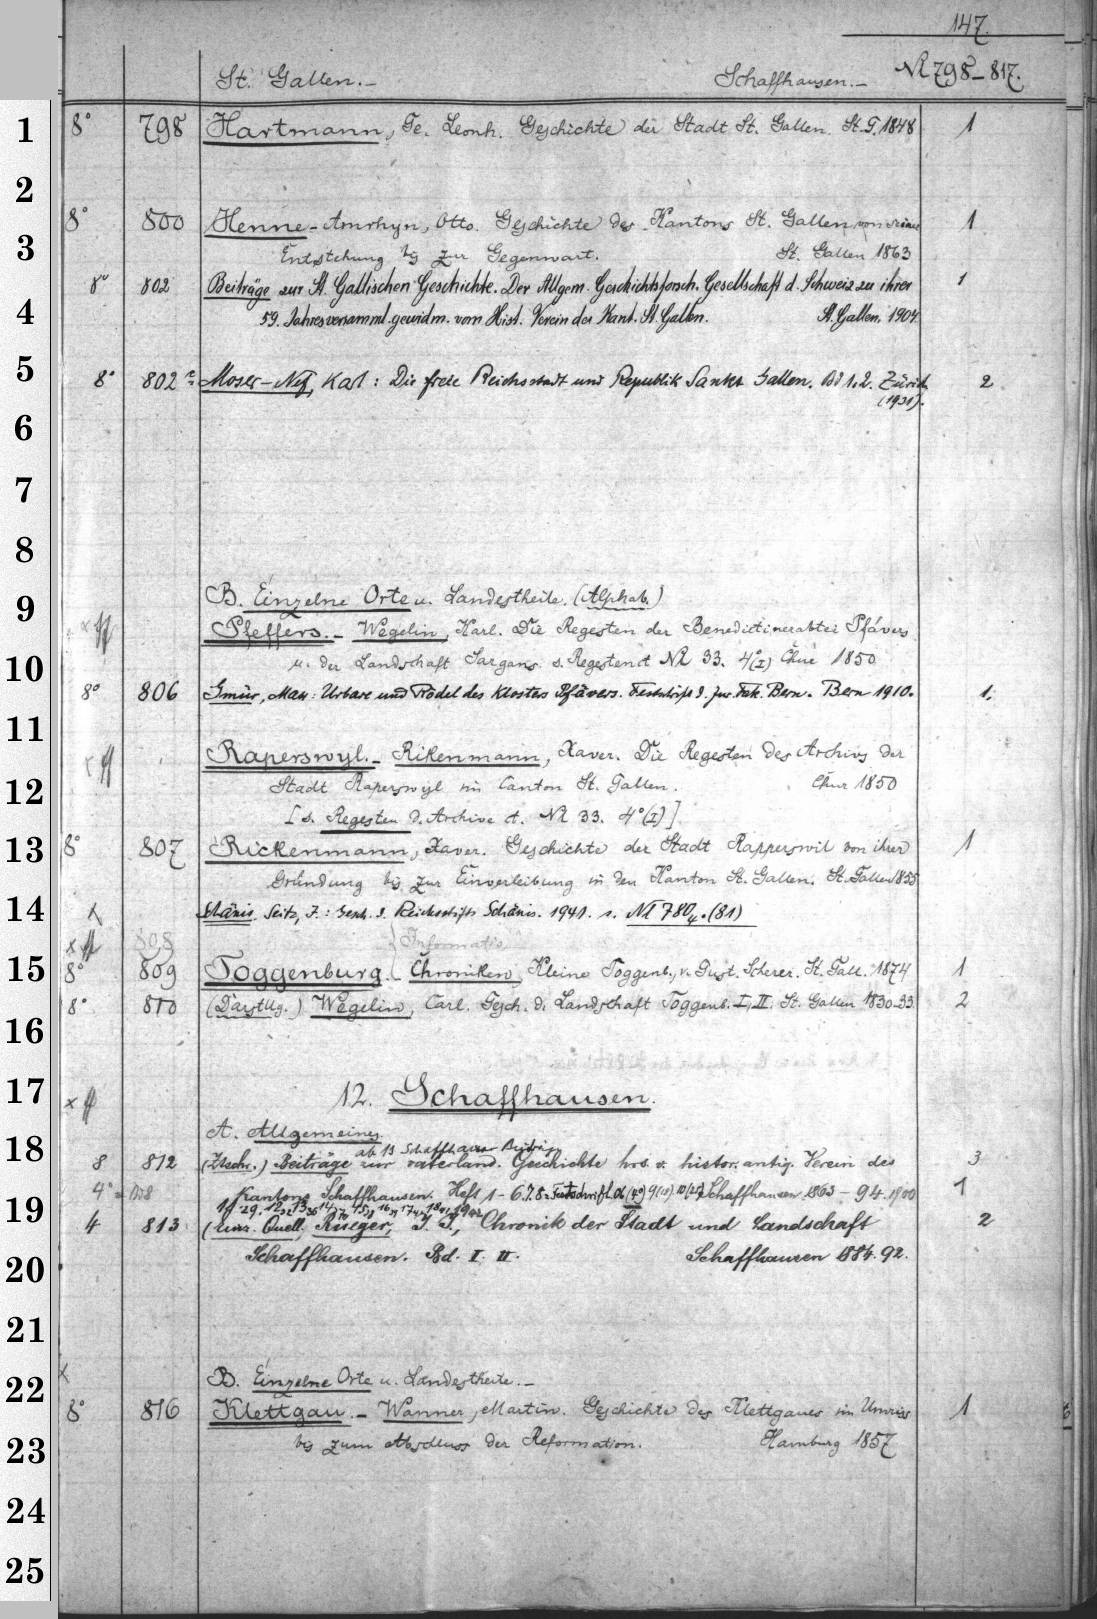 147.
St. Gallen.- Schaffhausen.- № 798-817.
1 8° 798 Hartmann, Ge. Leonh. Geschichte der Stadt St. Gallen. St. G. 1848 1
2
8° 800 Henne-Amrhyn, Otto. Geschichte des Kantons St. Gallen von seiner 1
3 Entstehung bis zur Gegenwart. St. Gallen 1863
8° 802 Beiträge zur St. Gallischen Geschichte. Der Allgem. Geschichtsforsch. Gesellschaft d. Schweiz zu ihrer 1
4 59. Jahresversamml. gewidm. vom Hist. Verein des Kant. St. Gallen. St. Gallen. 1904.
5 8° 802 Moser-Nef, Karl: Die freie Reichsstadt und Republik Sankt Gallen. Bd 1.2. Zürich 2
(1931).
6
7
8
9 B. Einzelne Orte u. Landestheile. (Alphab.)
Pfeffers.- Wegelin, Karl. Die Regesten der Benedictinerabtei Pfävers
10 u. der Landschaft Sargans. s. Regesten № 33. 4°(I) Chur 1850
8° 806 Gmür, Max: Urbare und Rödel des Klosters Pfävers. Festschrift d. jur. Fak. Bern. Bern 1910. 1.
11
Raperswyl.- Rikenmann, Xaver. Die Regesten des Archivs der
12 Stadt Raperswyl im Canton St. Gallen. Chur 1850
[s. Regesten d. Archive № 33. 4°(I)]
13 8° 807 Rickenmann, Xaver. Geschichte der Stadt Rapperswil von ihrer 1
Gründung bis zur Einverleibung in den Kanton St. Gallen. St. Gallen 1855
14 x Schänis. Seitz, J.: Gesch. d. Reichsstifts Schänis. 1941. s. № 780 (81)
808 Informatio
15 8° 809 Toggenburg. Chroniken, Kleine Toggenb., v. Gust. Scherer. St. Gall. 1874 1
8° 810 (Darstllg.) Wegelin, Carl. Gesch. d. Landschaft Toggenb. I, II. St. Gallen 1830-33 2
16
17 12. Schaffhausen.
18 A. Allgemeines.
ab 13 Schaffhauser Beiträge
8 812 (Ztschr.) Beiträge zur vaterländ. Geschichte hrs. v. histor. antiq. Verein des 3
4° Kantons Schaffhausen. Heft 1-6.7.8. Festschrift Schaffhausen 1863-94. 1900 1
19
4 813 (Quell. Rueger, J. J., Chronik der Stadt und Landschaft 2
20 Schaffhausen. Bd. I. II. Schaffhausen 1884. 92.
21
22 B. Einzelne Orte u. Landestheile.-
8° 816 Klettgau.- Wanner, Martin. Geschichte des Klettgaues im Umriss 1
23 bis zum Abschluss der Reformation. Hamburg 1857
24
25